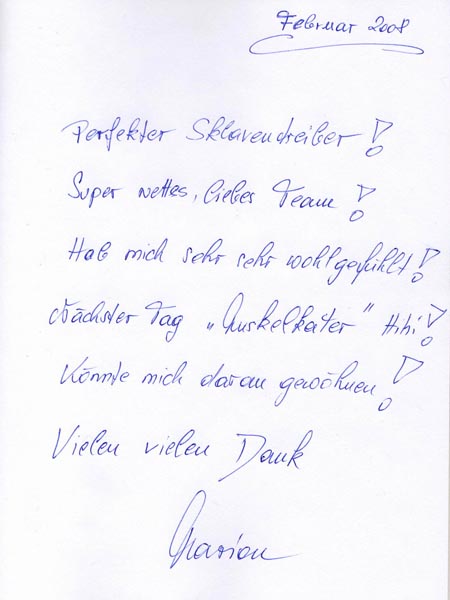 Februar 2008
Perfekter Sklaventreiber!
Super nettes, liebes Team!
Hab mich sehr sehr wohlgefühlt!
Nächster Tag „Muskelkater" Hihi!
Könnte mich daran gewöhnen!
Vielen vielen Dank
Marion